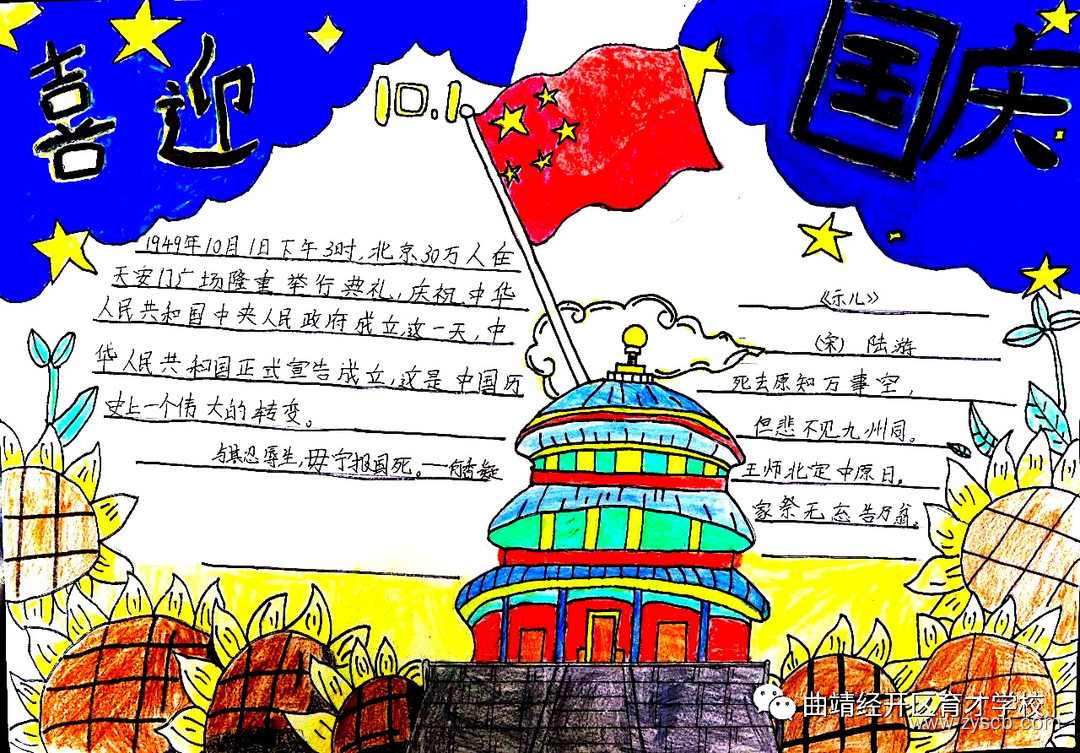 喜迎
国庆
10.1
1949年10月1日下午3时,北京30万人在
天安门广场隆重举行典礼,庆祝中华
人民共和国中央人民政府成立,这一天,中
华人民共和国正式宣告成立,这是中国历
史上一个伟大的转变。
与其忍辱生,毋宁报国死。——何香凝
《示儿》
(宋) 陆游
死去原知万事空,
但悲不见九州同。
王师北定中原日。
家祭无忘告乃翁。
曲靖经开区育才学校
www.zyscb.com